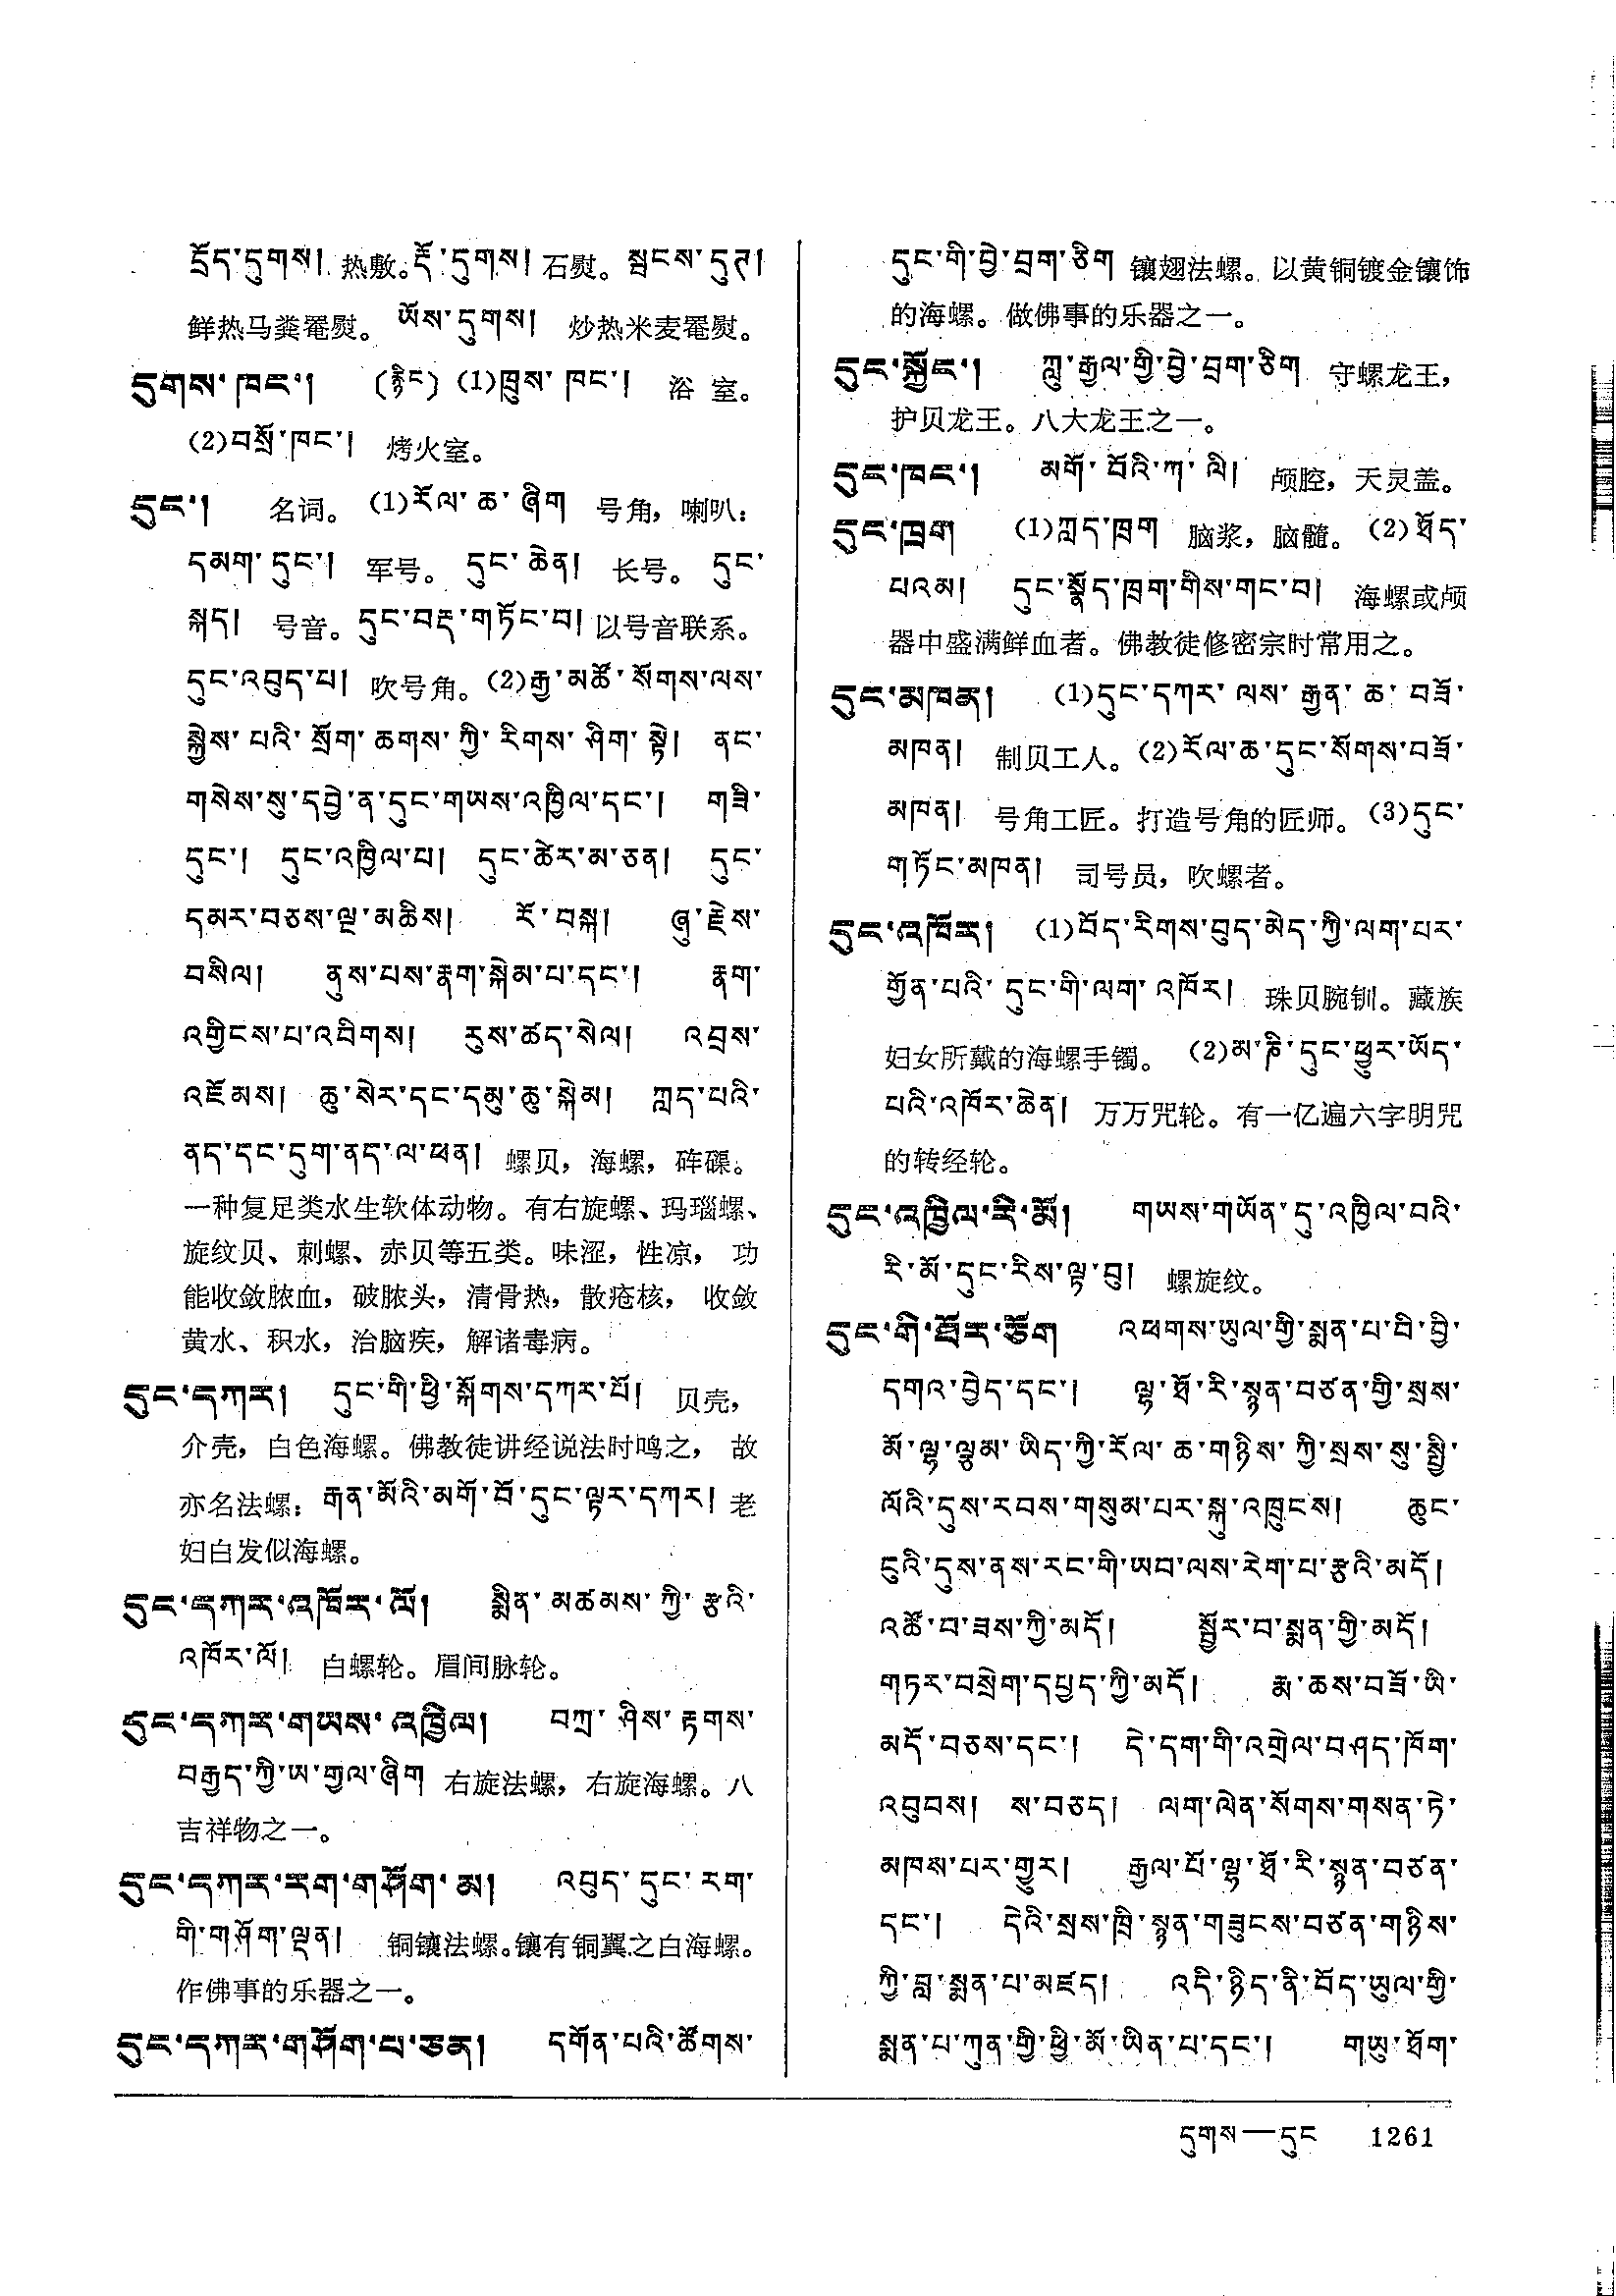 དྲོད་དུགས། 热敷。རྡོ་དུགས། 石熨。 སྦངས་དུཊ།
鲜热马粪罨熨。 ཡོས་དུགས། 炒热米麦罨熨。
དུགས་ཁང་། (རྙིང) (1)ཁྲུས་ཁང་། 浴室。
(2)བསྲོ་ཁང་། 烤火室。
དུང་། 名词。(1)རོལ་ཆ་ཞིག 号角，喇叭：
དམག་དུང་། 军号。 དུང་ཆེན། 长号。 དུང་
སྐད། 号音。དུང་བརྡ་གཏོང་བ། 以号音联系。
དུང་འབུད་པ། 吹号角。(2)རྒྱ་མཚོ་སོགས་ལས་
སྐྱེས་པའི་སྲོག་ཆགས་ཀྱི་རིགས་ཤིག་སྟེ། ནང་
གསེས་སུ་དབྱེ་ན་དུང་གཡས་འཁྱིལ་དང་། གཟི་
དུང་། དུང་འཁྱིལ་པ། དུང་ཚེར་མ་ཅན། དུང་
དམར་བཅས་ལྔ་མཆིས། རོ་བསྐ། ཞུ་རྗེས་
བསིལ། ནུས་པས་རྣག་སྐེམ་པ་དང་། རྣག་
འགྱིངས་པ་འབིགས། རུས་ཚད་སེལ། འབྲས་
འཇོམས། ཆུ་སེར་དང་དམུ་ཆུ་སྐེམ། ཀླད་པའི་
ནད་དང་དུག་ནད་ལ་ཕན། 螺贝，海螺，砗磲。
一种复足类水生软体动物。有右旋螺、玛瑙螺、
旋纹贝、刺螺、赤贝等五类。味涩，性凉，功
能收敛脓血，破脓头，清骨热，散疮核，收敛
黄水、积水，治脑疾，解诸毒病。
དུང་དཀར། དུང་གི་ཕྱི་སྐོགས་དཀར་པོ། 贝壳，
介壳，白色海螺。佛教徒讲经说法时鸣之，故
亦名法螺：རྒན་མོའི་མགོ་བོ་དུང་ལྟར་དཀར། 老
妇白发似海螺。
དུང་དཀར་འཁོར་ལོ། སྨིན་མཚམས་ཀྱི་རྩའི་
འཁོར་ལོ། 白螺轮。眉间脉轮。
དུང་དཀར་གཡས་འཁྱིལ། བཀྲ་ཤིས་རྟགས་
བརྒྱད་ཀྱི་ཡ་གྱལ་ཞིག 右旋法螺，右旋海螺。八
吉祥物之一。
དུང་དཀར་རག་གཤོག་མ། འབུད་དུང་རག་
གི་གཤོག་ལྡན། 铜镶法螺。镶有铜翼之白海螺。
作佛事的乐器之一。
དུང་དཀར་གཤོག་པ་ཅན། དགོན་པའི་ཚོགས་
དུང་གི་བྱེ་བྲག་ཅིག 镶翅法螺。以黄铜镀金镶饰
的海螺。做佛事的乐器之一。
དུང་སྐྱོང་། ཀླུ་རྒྱལ་གྱི་བྱེ་བྲག་ཅིག 守螺龙王，
护贝龙王。八大龙王之一。
དུང་ཁང་། མགོ་བོའི་ཀ་ལི། 颅腔，天灵盖。
དུང་ཁྲག (1)ཀླད་ཁྲག 脑浆，脑髓。(2)ཐོད་
པའམ། དུང་སྣོད་ཁྲག་གིས་གང་བ། 海螺或颅
器中盛满鲜血者。佛教徒修密宗时常用之。
དུང་མཁན། (1)དུང་དཀར་ལས་རྒྱན་ཆ་བཟོ་
མཁན། 制贝工人。(2)རོལ་ཆ་དུང་སོགས་བཟོ་
མཁན། 号角工匠。打造号角的匠师。(3)དུང་
གཏོང་མཁན། 司号员，吹螺者。
དུང་འཁོར། (1)བོད་རིགས་བུད་མེད་ཀྱི་ལག་པར་
གྱོན་པའི་དུང་གི་ལག་འཁོར། 珠贝腕钏。藏族
妇女所戴的海螺手镯。 (2)མ་ཎི་དུང་ཕྱུར་ཡོད་
པའི་འཁོར་ཆེན། 万万咒轮。有一亿遍六字明咒
的转经轮。
དུང་འཁྱིལ་རི་མོ། གཡས་གཡོན་དུ་འཁྱིལ་བའི་
རི་མོ་དུང་རིས་ལྟ་བུ། 螺旋纹。
དུང་གི་ཐོར་ཅོག འཕགས་ཡུལ་གྱི་སྨན་པ་བི་བྱི་
དགའ་བྱེད་དང་། ལྷ་ཐོ་རི་སྙན་བཙན་གྱི་སྲས་
མོ་ལྷ་ལྕམ་ཡིད་ཀྱི་རོལ་ཆ་གཉིས་ཀྱི་སྲས་སུ་སྤྱི་
ལོའི་དུས་རབས་གསུམ་པར་སྐུ་འཁྲུངས། ཆུང་
ངུའི་དུས་ནས་རང་གི་ཡབ་ལས་རེག་པ་རྩའི་མདོ།
འཚོ་བ་ཟས་ཀྱི་མདོ། སྦྱོར་བ་སྨན་གྱི་མདོ།
གཏར་བསྲེག་དཔྱད་ཀྱི་མདོ། རྨ་ཆས་བཟོ་ཡི་
མདོ་བཅས་དང་། དེ་དག་གི་འགྲེལ་བཤད་ཁོག་
འབུབས། ས་བཅད། ལག་ལེན་སོགས་གསན་ཏེ་
མཁས་པར་གྱུར། རྒྱལ་པོ་ལྷ་ཐོ་རི་སྙན་བཙན་
དང་། དེའི་སྲས་ཁྲི་སྙན་གཟུངས་བཙན་གཉིས་
ཀྱི་བླ་སྨན་པ་མཛད། འདི་ཉིད་ནི་བོད་ཡུལ་གྱི་
སྨན་པ་ཀུན་གྱི་ཕྱི་མོ་ཡིན་པ་དང་། གཡུ་ཐོག་
དུགས—དུང 1261